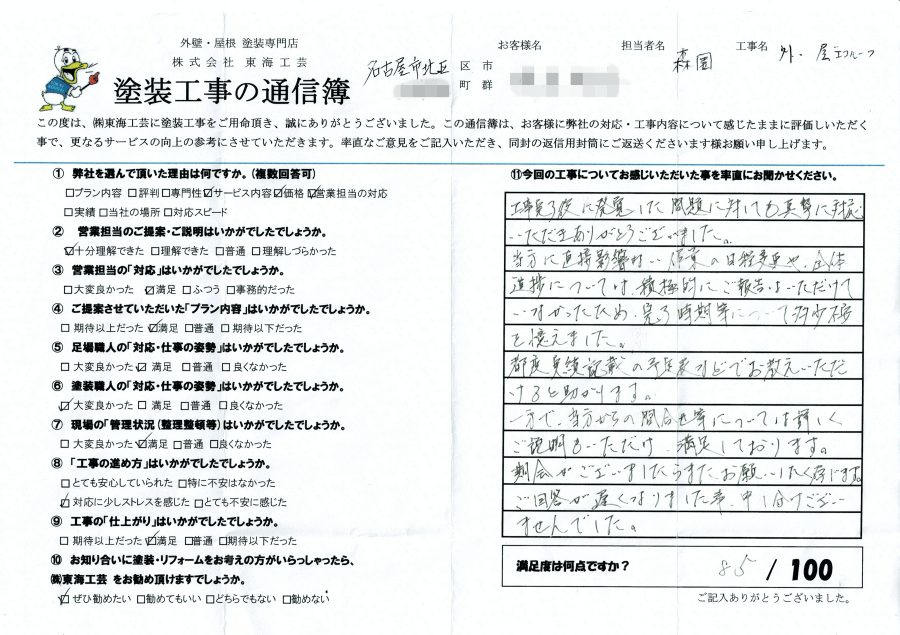 外壁・屋根 塗装専門店
株式会社 東海工芸
塗装工事の通信簿
名古屋市北区
区 市
町 群
お客様名
担当者名 森岡
工事名 外・屋エコルーフ
この度は、㈱東海工芸に塗装工事をご用命頂き、誠にありがとうございました。この通信簿は、お客様に弊社の対応・工事内容について感じたままに評価しいただく
事で、更なるサービスの向上の参考にさせていただきます。率直なご意見をご記入いただき、同封の返信用封筒にご返送くださいます様お願い申し上げます。
① 弊社を選んで頂いた理由は何ですか。(複数回答可)
□プラン内容 □評判 □専門性 ☑サービス内容 ☑価格 ☑営業担当の対応
□実績 □当社の場所 □対応スピード
② 営業担当のご提案・ご説明はいかがでしたでしょうか。
☑十分理解できた □理解できた □普通 □理解しづらかった
③ 営業担当の「対応」はいかがでしたでしょうか。
□大変良かった ☑満足 □ふつう □事務的だった
④ ご提案させていただいた「プラン内容」はいかがでしたでしょうか。
□ 期待以上だった ☑満足 □普通 □期待以下だった
⑤ 足場職人の「対応・仕事の姿勢」はいかがでしたでしょうか。
□ 大変良かった ☑ 満足 □普通 □良くなかった
⑥ 塗装職人の「対応・仕事の姿勢」はいかがでしたでしょうか。
☑ 大変良かった □ 満足 □普通 □良くなかった
⑦ 現場の「管理状況(整理整頓等)」はいかがでしたでしょうか。
□ 大変良かった ☑満足 □普通 □良くなかった
⑧ 「工事の進め方」はいかがでしたでしょうか。
□とても安心していられた □特に不安はなかった
☑ 対応に少しストレスを感じた □とても不安に感じた
⑨ 工事の「仕上がり」はいかがでしたでしょうか。
□ 期待以上だった ☑満足 □普通 □期待以下だった
⑩ お知り合いに塗装・リフォームをお考えの方がいらっしゃったら、
㈱東海工芸 をお勧め頂けますでしょうか。
☑ぜひ勧めたい □勧めてもいい □どちらでもない □勧めない
⑪今回の工事についてお感じいただいた事を率直にお聞かせください。
工事完了後に発覚した問題に対しても真摯に対応
いただきありがとうございました。
当方に直接影響ない作業の日程変更や、全体
進捗については、積極的にご報告をいただけて
いなかったため、完了時期等について多少不安
を憶えました。
都度実績記載の予定表などでお教えいただ
けると助かります。
一方で、当方からの問合せ等については詳しく
ご説明をいただけ、満足しております。
機会がございましたらまたお願いしたく存じます。
ご回答が遅くなりました事、申し訳ござい
ませんでした。
満足度は何点ですか? 85 / 100
ご記入ありがとうございました。